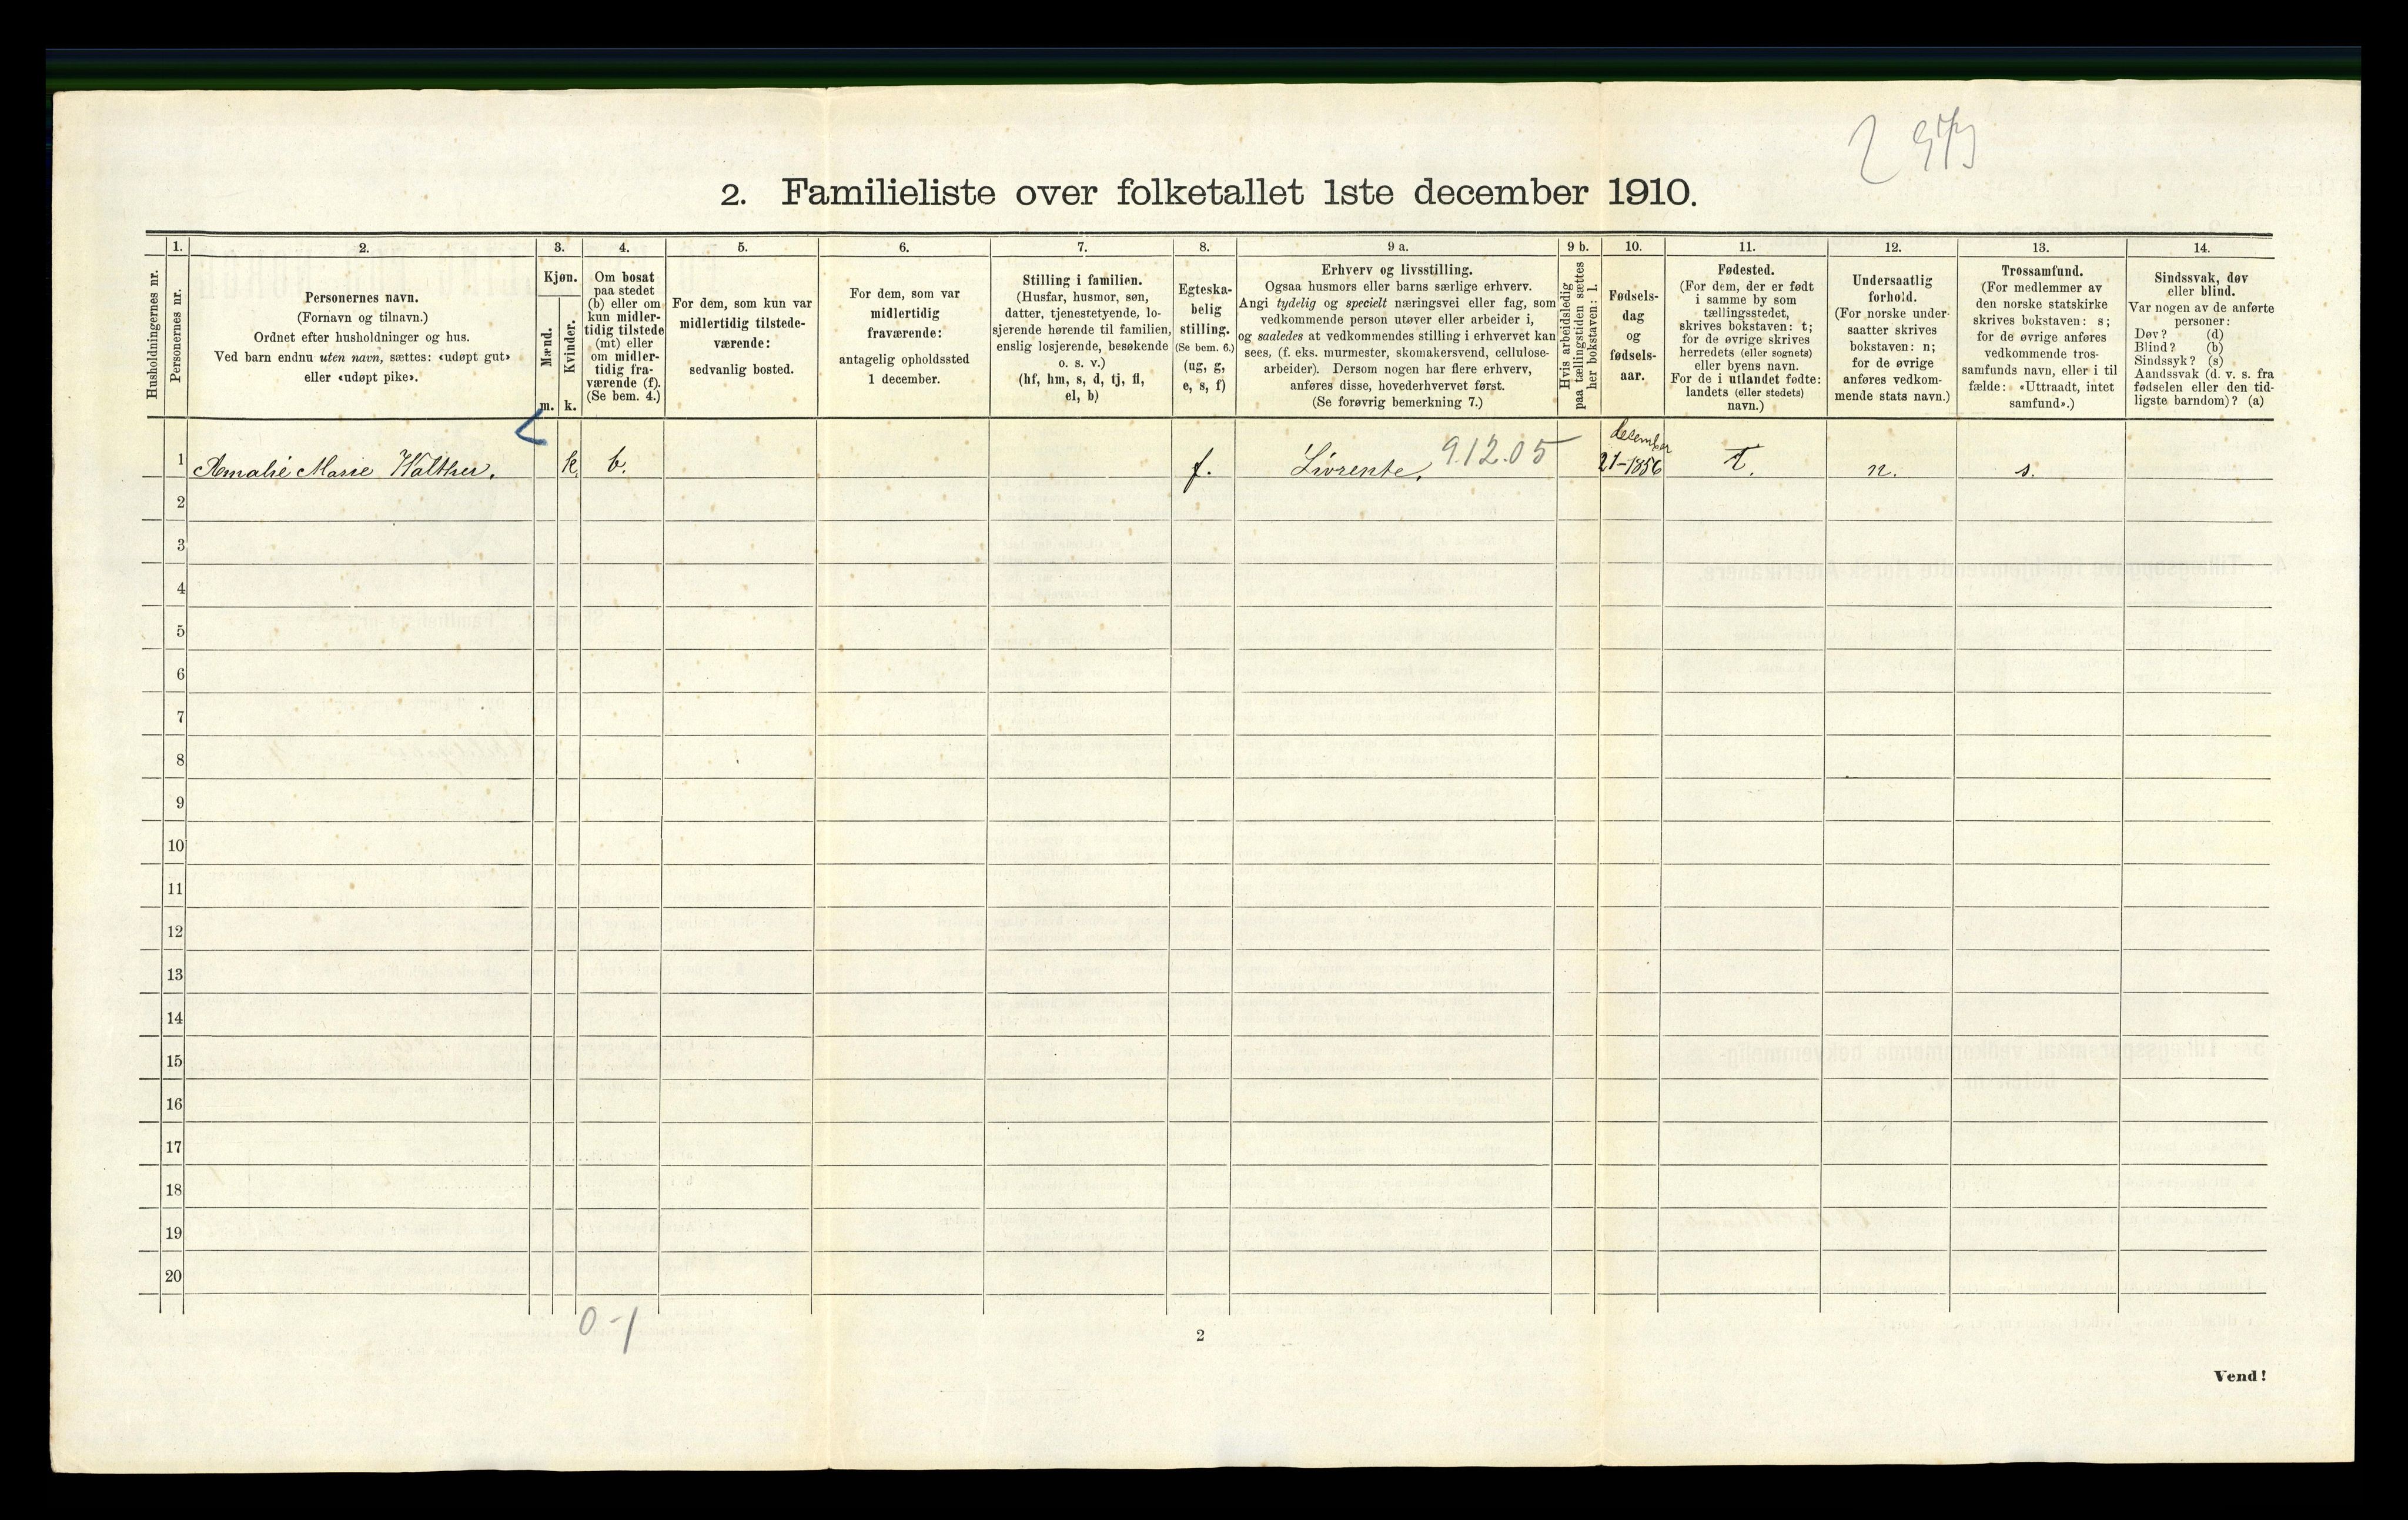 2. Familieliste over folketallet 1ste december 1910.
Husholdningernes nr.
1.
Personernes nr.
2.
Personernes navn.
(Fornavn og tilnavn.)
Ordnet efter husholdninger og hus.
Ved barn endnu uten navn, sættes: «udøpt gut»
eller «udøpt pike».
3.
Kjøn.
Mænd.
m.
Kvinder.
k.
4.
Om bosat
paa stedet
(b) eller om
kun midler-
tidig tilstede
(mt) eller
om midler-
tidig fra-
værende (f).
(Se bem. 4.)
5.
For dem, som kun var
midlertidig tilstede-
værende:
sedvanlig bosted.
6.
For dem, som var
midlertidig
fraværende:
antagelig opholdssted
1 december.
7.
Stilling i familien.
(Husfar, husmor, søn,
datter, tjenestetyende, lo-
sjerende hørende til familien,
enslig losjerende, besøkende
o. s. v.)
(hf, hm, s, d, tj, fl,
el, b)
8.
Egteska-
belig
stilling.
(Se bem. 6.)
(ug, g,
e, s, f)
9 a.
Erhverv og livsstilling.
Ogsaa husmors eller barns særlige erhverv.
Angi tydelig og specielt næringsvei eller fag, som
vedkommende person utøver eller arbeider i,
og saaledes at vedkommendes stilling i erhvervet kan
sees, (f. eks. murmester, skomakersvend, cellulose-
arbeider). Dersom nogen har flere erhverv,
anføres disse, hovederhvervet først.
(Se forøvrig bemerkning 7.)
9 b.
Hvis arbeidsledig
paa tællingstiden sættes
her bokstaven: l.
10.
Fødsels-
dag
og
fødsels-
aar.
11.
Fødested.
(For dem, der er født
i samme by som
tællingsstedet,
skrives bokstaven: t;
for de øvrige skrives
herredets (eller sognets)
eller byens navn.
For de i utlandet fødte:
landets (eller stedets)
navn.)
12.
Undersaatlig
forhold.
(For norske under-
saatter skrives
bokstaven: n;
for de øvrige
anføres vedkom-
mende stats navn.)
13.
Trossamfund.
(For medlemmer av
den norske statskirke
skrives bokstaven: s;
for de øvrige anføres
vedkommende tros-
samfunds navn, eller i til
fælde: «Uttraadt, intet
samfund».)
14.
Sindssvak, døv
eller blind.
Var nogen av de anførte
personer:
Døv? (d)
Blind? (b)
Sindssyk? (s)
Aandssvak (d. v. s. fra
fødselen eller den tid-
ligste barndom)? (a)
1 Amalie Marie Walther. k b. f. Livrente. 912.05 desember 21-1856 t. n. s.
2
3
4
5
6
7
8
9
10
11
12
13
14
15
16
17
18
19
20
0-1
2
Vend!